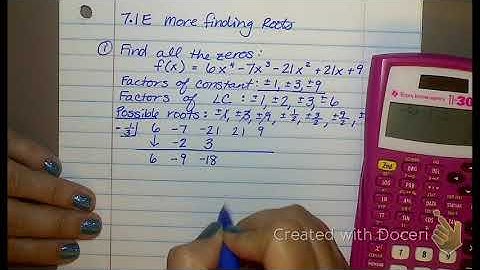 7.1E more finding Roots
① Find all the zeros:
f(x) = 6x⁴ - 7x³ - 21x² + 21x + 9
Factors of constant: ±1, ±3, ±9
Factors of LC: ±1, ±2, ±3, ±6
Possible roots: ±1, ±3, ±9, ±1/2, ±3/2, ±9/2,
-1/3 | 6 -7 -21 21 9
↓ -2 3
6 -9 -18
Texas Instruments TI-30
Created with Doceri
7 8 9